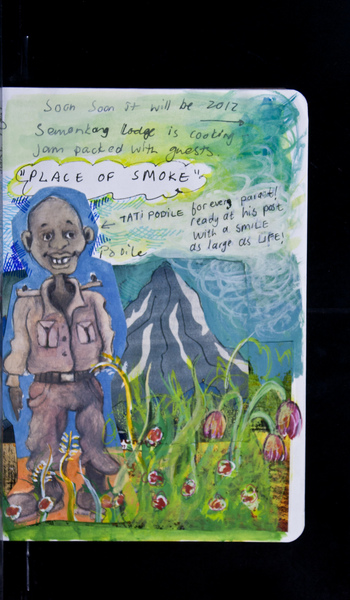 Soon Soon it will be 2012
Semonkong Lodge is cooking
jam packed with guests.
"PLACE OF SMOKE"
← TATI PODILE for every parent!
ready at his post
with a SMILE
as large as LIFE!
Podile